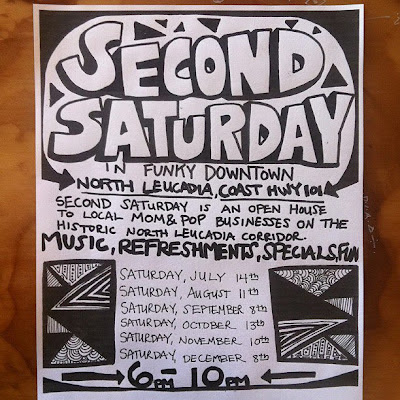 SECOND
SATURDAY
IN FUNKY DOWNTOWN
NORTH LEUCADIA, COAST HWY 101
SECOND SATURDAY IS AN OPEN HOUSE
TO LOCAL MOM&POP BUSINESSES ON THE
HISTORIC NORTH LEUCADIA CORRIDOR.
MUSIC, REFRESHMENTS, SPECIALS, FUN
SATURDAY, JULY 14th
SATURDAY, AUGUST 11th
SATURDAY, SEPTEMBER 8th
SATURDAY, OCTOBER 13th
SATURDAY, NOVEMBER 10th
SATURDAY, DECEMBER 8th
6PM - 10PM